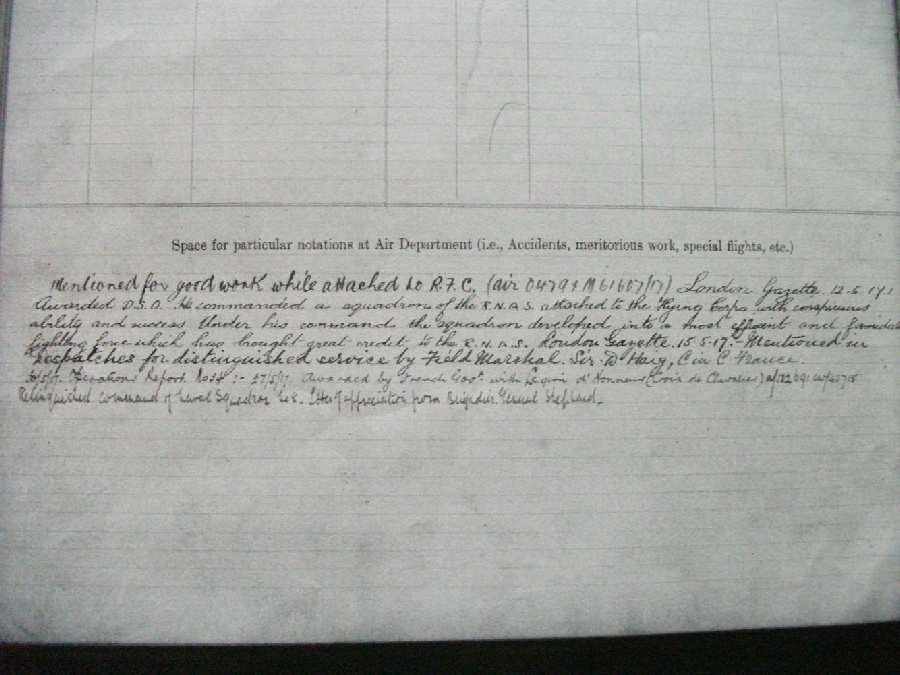 Space for particular notations at Air Department (i.e., Accidents, meritorious work, special flights, etc.)
Mentioned for good work while attached to R.F.C. (Air 04793 M 61607/17) London Gazette 12.5.17.
Awarded D.S.O. He commanded a squadron of the R.N.A.S. attached to the Flying Corps with conspicuous
ability and success. Under his command the squadron developed into a most efficient and formidable
fighting force which has brought great credit to the R.N.A.S. London Gazette. 15.5.17. - Mentioned in
Despatches for distinguished service by Field Marshal. Sir D Haig, C in C France.
Operations Report. No :- 27/5/17. Awarded by French Govt. with Legion d'Honneur (Croix de Chevalier)
Relinquished command of Naval Squadron No 8. Letter of appreciation from Brigadier General Shephard.